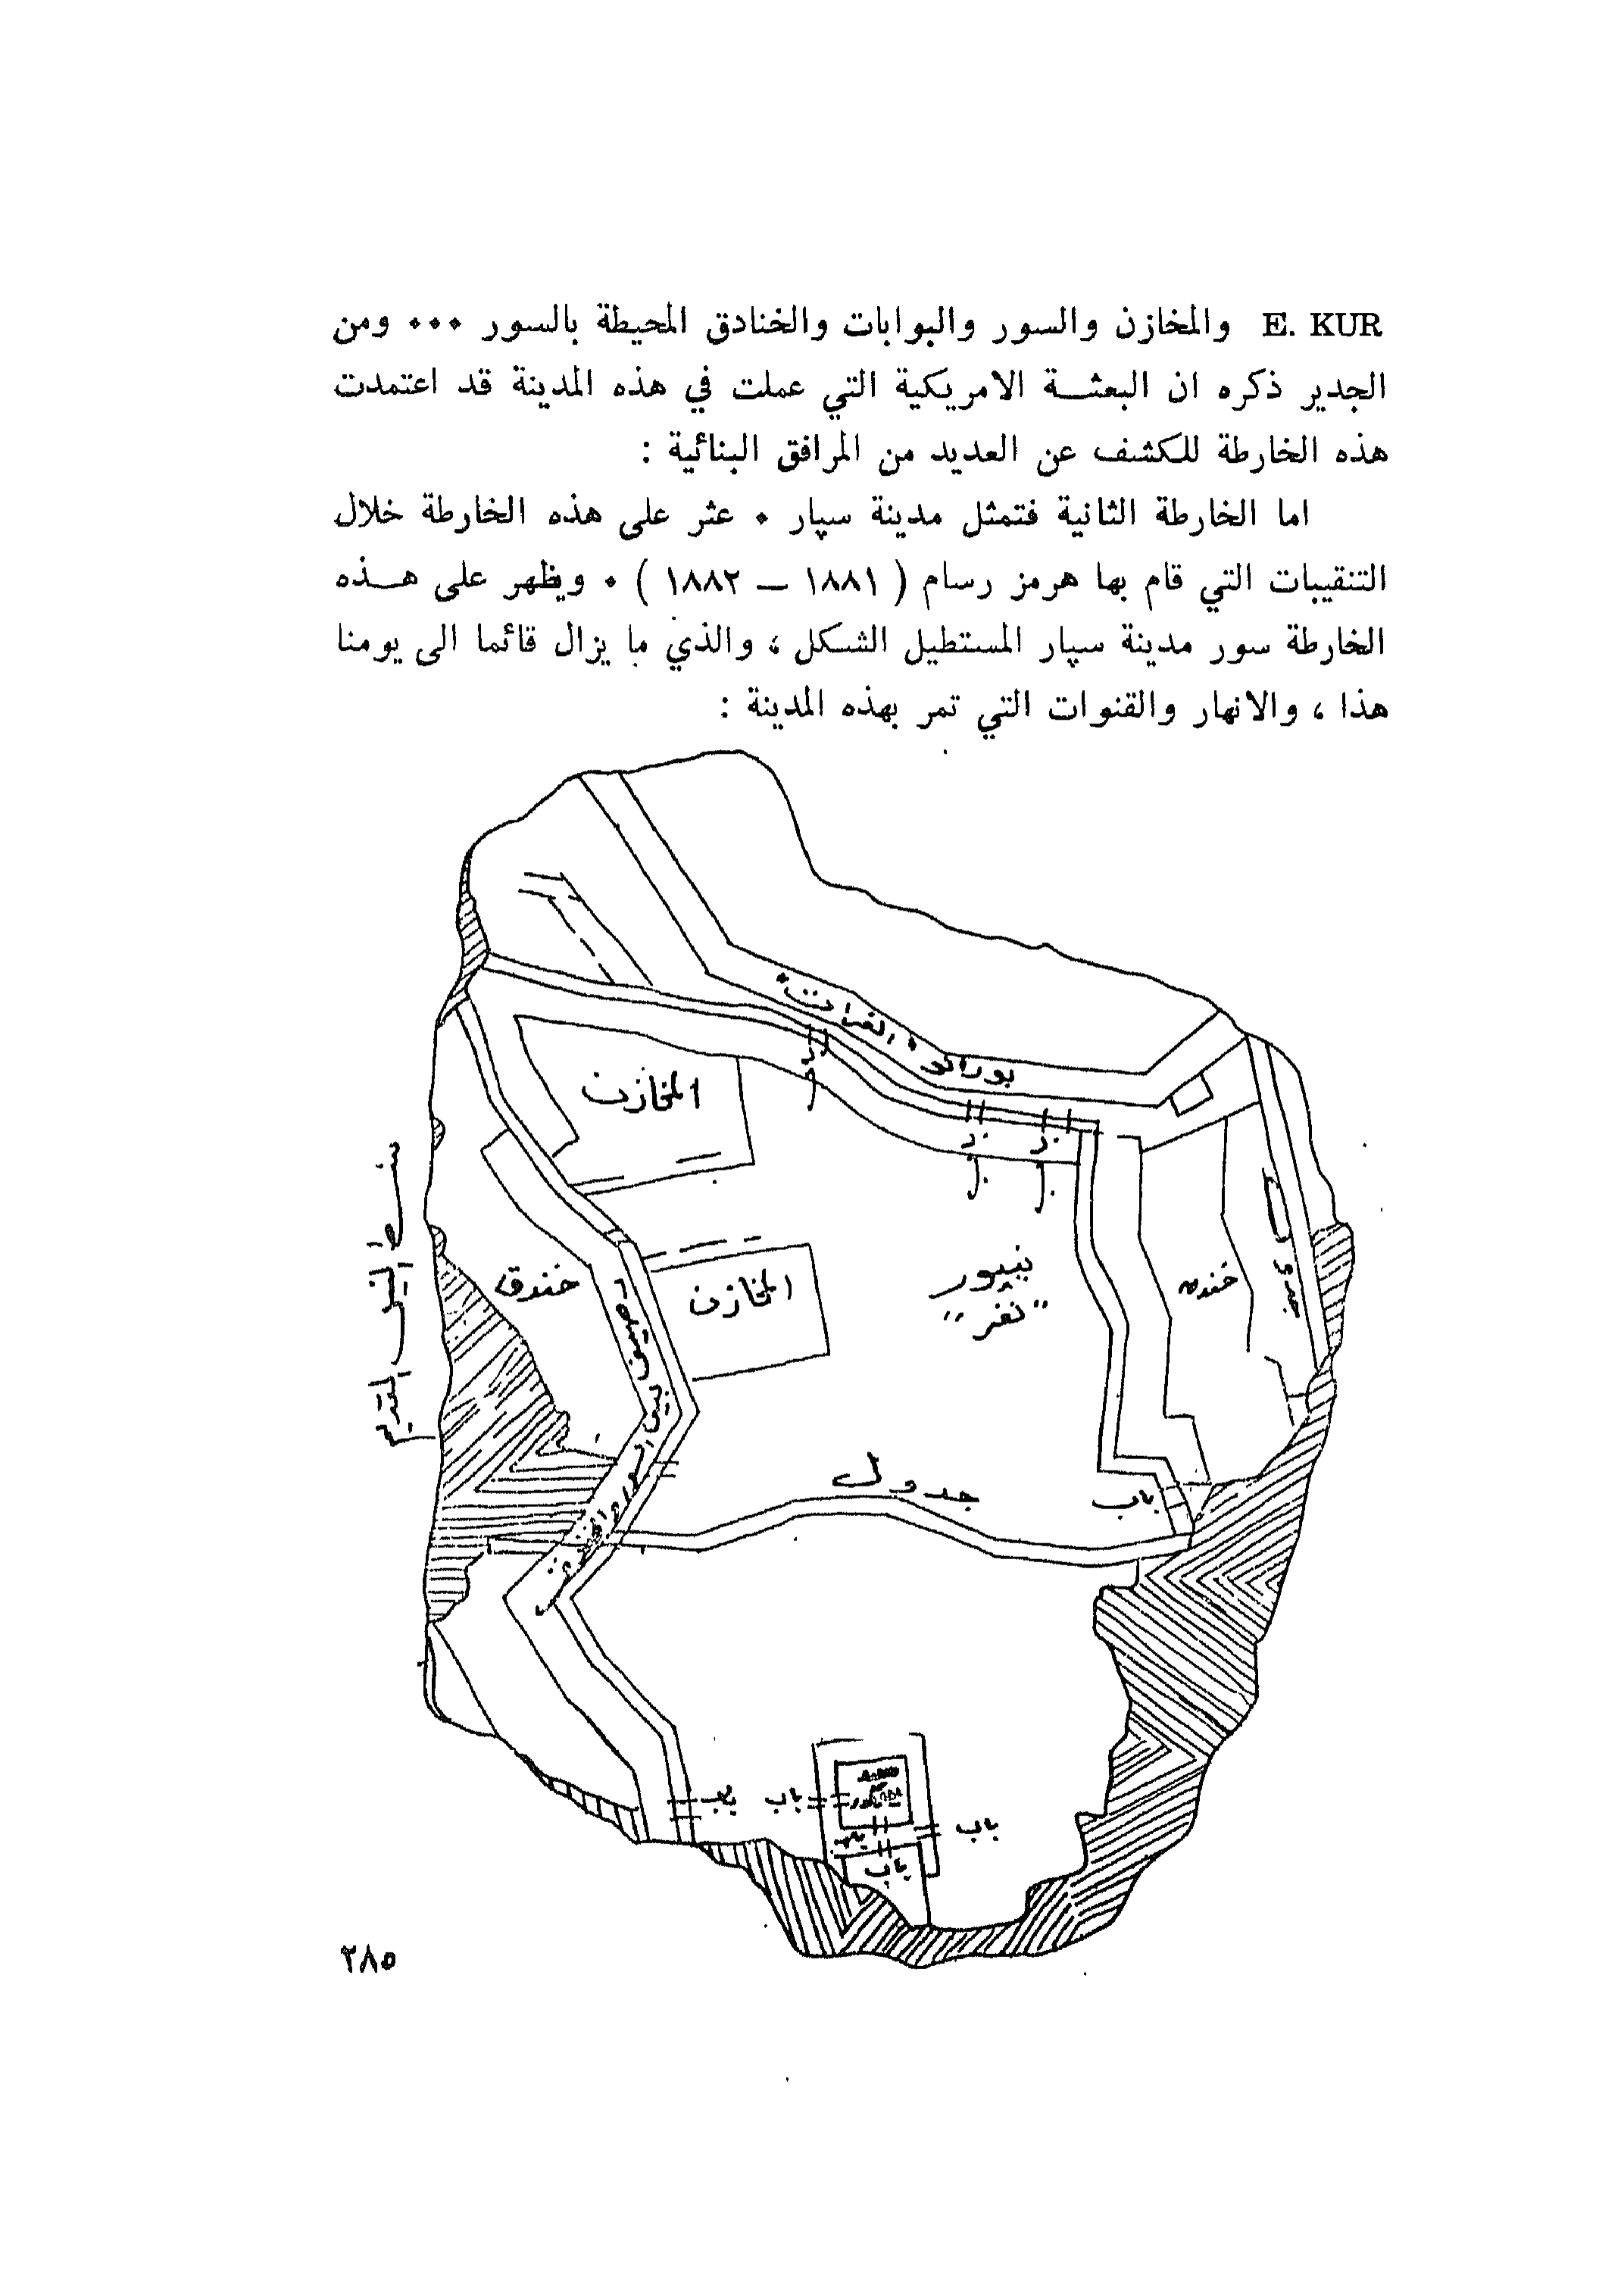 E. KUR والمخازن والسور والبوابات والخنادق المحيطة بالسور ••• ومن
الجدير ذكره ان البعثــة الامريكية التي عملت في هذه المدينة قد اعتمدت
هذه الخارطة للكشف عن العديد من المرافق البنائية :
اما الخارطة الثانية فتمثل مدينة سپار • عثر على هذه الخارطة خلال
التنقيبات التي قام بها هرمز رسام ( ١٨٨١ – ١٨٨٢ ) • ويظهر على هــذه
الخارطة سور مدينة سپار المستطيل الشكل ، والذي ما يزال قائما الى يومنا
هذا ، والانهار والقنوات التي تمر بهذه المدينة :
بوراتو " الفرات "
المخازن
خندق
المخازن
نيپور
" نفر "
خندق
جدول
باب
باب
باب
باب
باب
٢٨٥